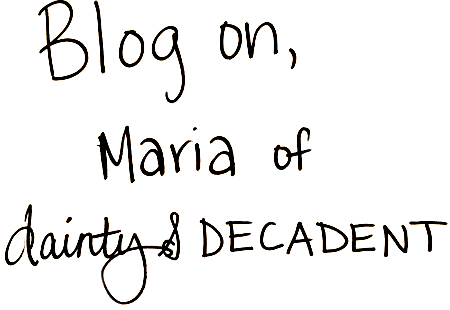 Blog on,
Maria of
dainty & DECADENT